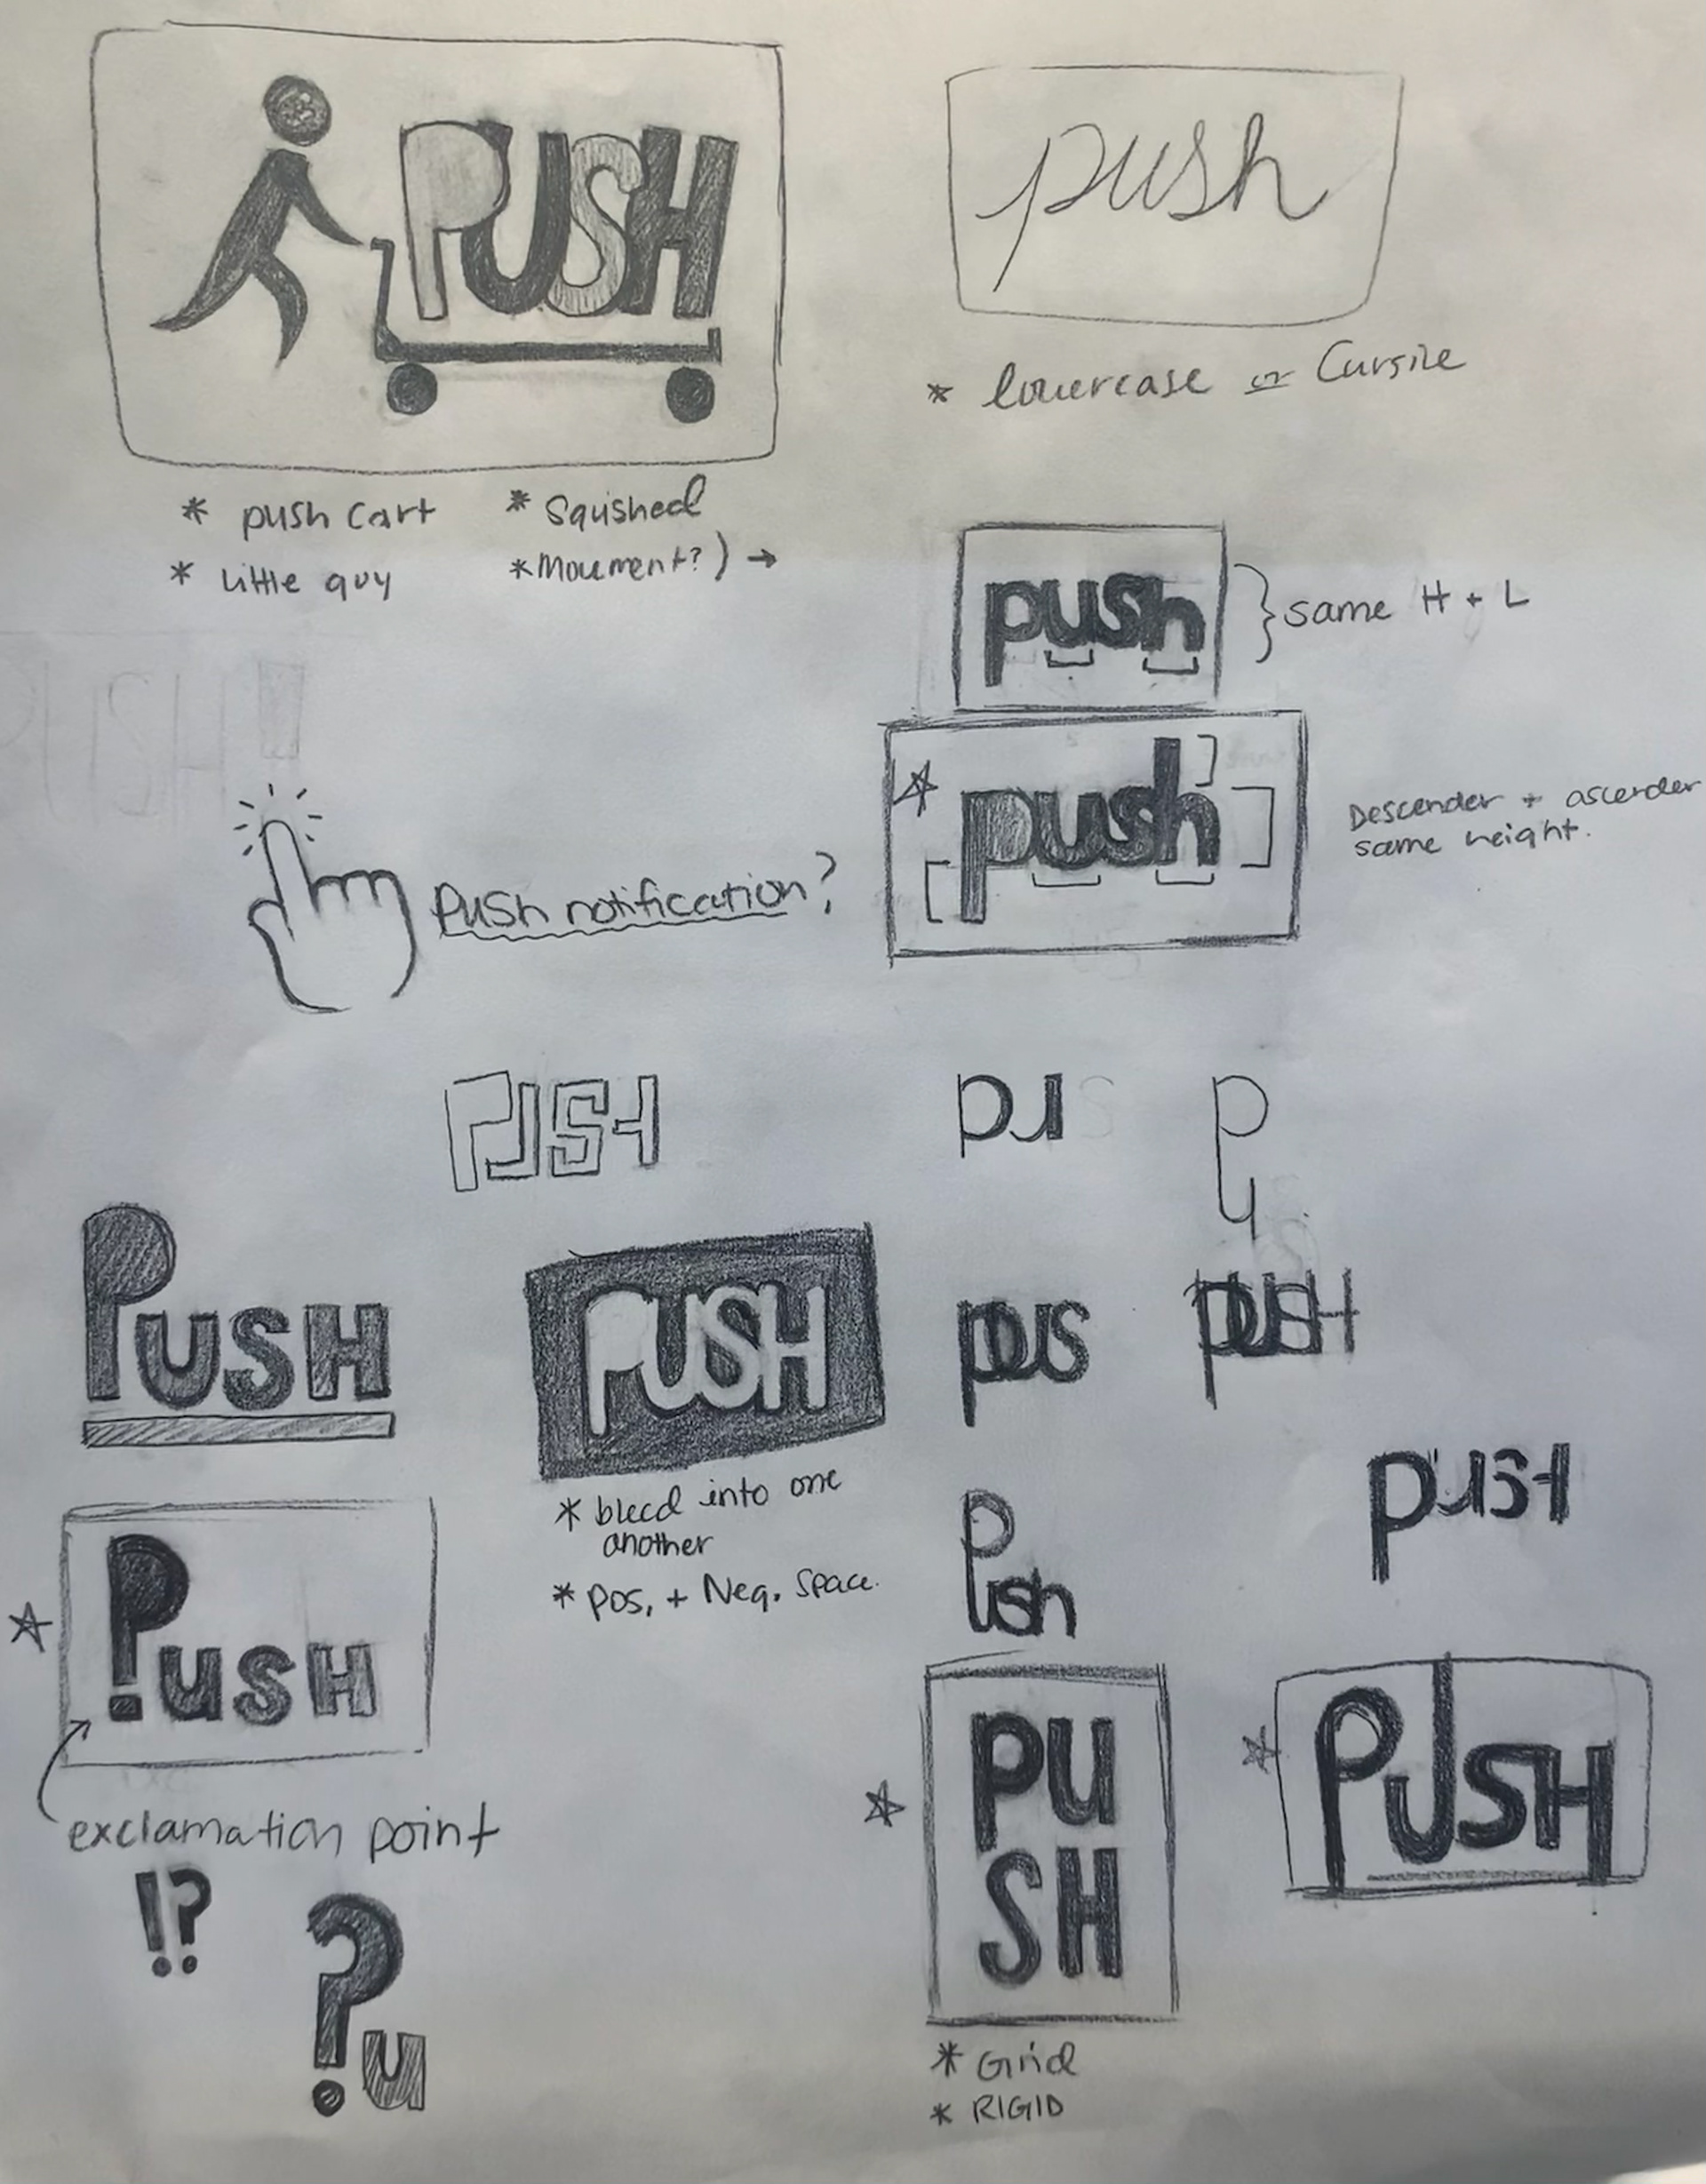 PUSH
push
* lowercase or Cursive
* push cart
* Squished
* little guy
* Movement?) →
push
} same H + L
push
Descender + ascender
same height.
Push notification?
PUSH
pu s
p
u
PUSH
PUSH
pus
PUSH
* bleed into one
another
* Pos. + Neg. Space.
push
PUSH
PUSH
exclamation point
PU
SH
PUSH
!?
?u
* Grid
* RIGID